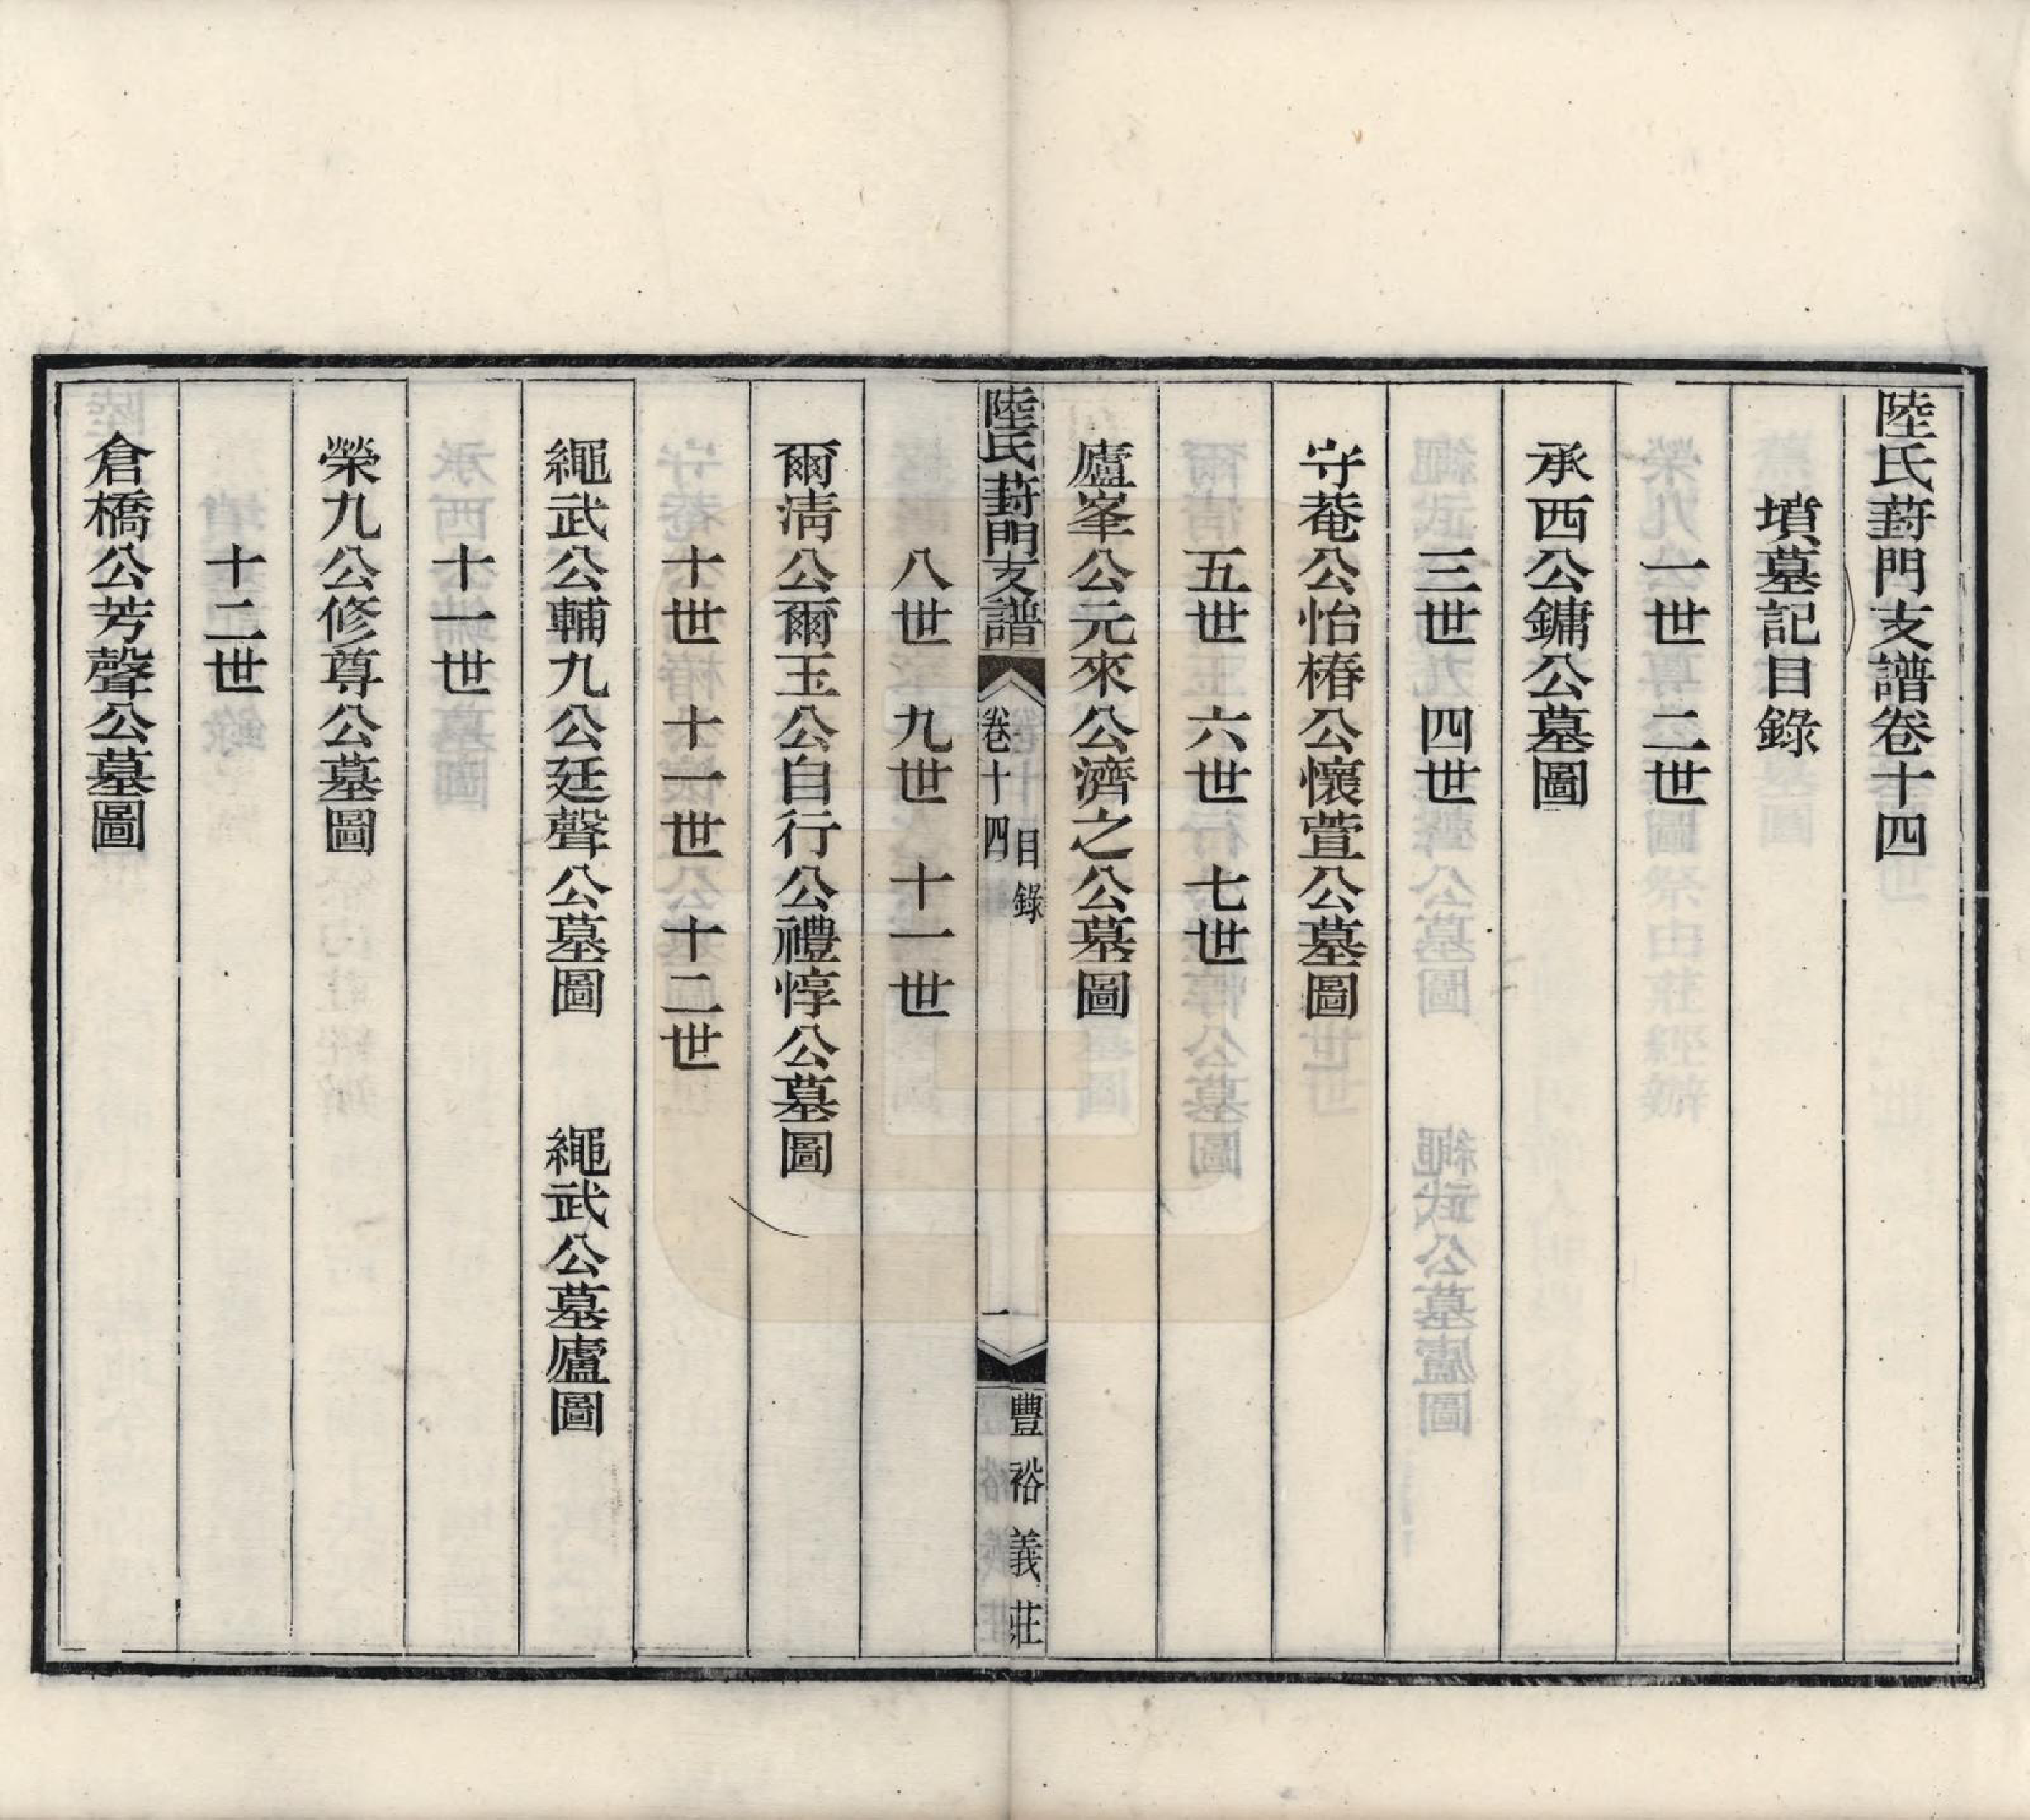 陸氏葑門支譜卷十四
墳墓記目錄
一世　二世
承西公鏞公墓圖
三世　四世
守菴公怡椿公懷萱公墓圖
五世　六世　七世
廬峯公元來公濟之公墓圖
陸氏葑門支譜　卷十四　目錄　一　豐裕義莊
八世　九世　十一世
爾淸公爾玉公自行公禮惇公墓圖
十世　十一世　十二世
繩武公輔九公廷聲公墓圖　繩武公墓廬圖
十一世
榮九公修尊公墓圖
十二世
倉橋公芳聲公墓圖